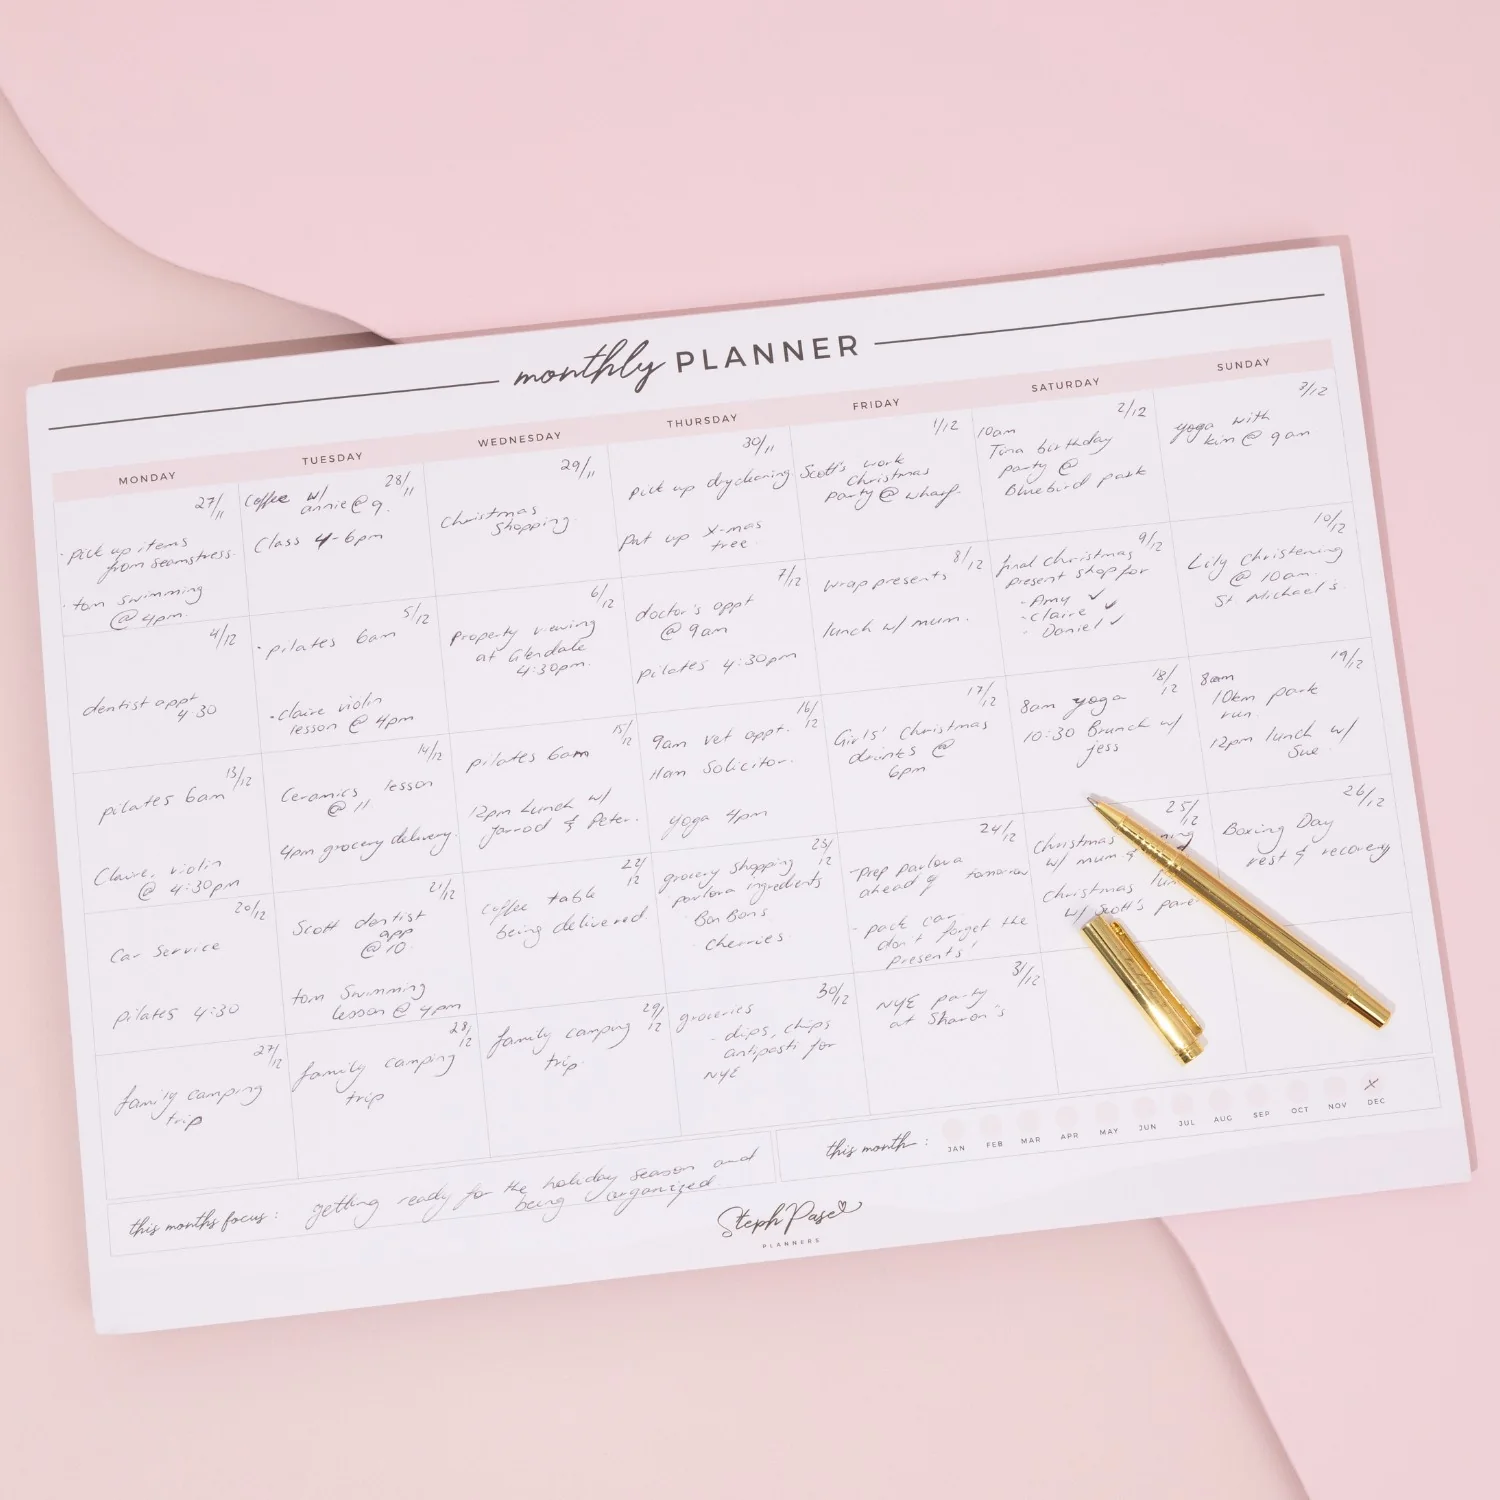 monthly PLANNER
MONDAY TUESDAY WEDNESDAY THURSDAY FRIDAY SATURDAY SUNDAY
27/11
· pick up items
from seamstress.
· tom swimming
@ 4pm.
28/11
Coffee w/
annie @ 9.
Class 4-6pm
29/11
Christmas
Shopping.
30/11
pick up drycleaning
Put up X-mas
tree.
1/12
Scott's work
Christmas
party @ wharf.
2/12
10am
Tina birthday
party @
Bluebird park
3/12
yoga with
kim @ 9am
4/12
dentist appt
4.30
5/12
· pilates 6am
· Claire violin
lesson @ 4pm
6/12
Property viewing
at Glendale
4:30pm.
7/12
doctor's appt
@ 9am
pilates 4:30pm
8/12
wrap presents
lunch w/ mum.
9/12
final christmas
present shop for
- Amy ✓
- Claire ✓
- Daniel ✓
10/12
Lily Christening
@ 10am.
St. Michael's.
13/12
pilates 6am
Claire, violin
@ 4:30pm
14/12
Ceramics lesson
@ 11
4pm grocery delivery.
15/12
pilates 6am
12pm Lunch w/
Jarrod & Peter.
16/12
9am vet appt.
11am Solicitor.
yoga 4pm
17/12
Girls' Christmas
drinks @
6pm
18/12
8am yoga
10:30 Brunch w/
jess
19/12
8am
10km park
run.
12pm lunch w/
Sue.
20/12
Car Service
pilates 4:30
21/12
Scott dentist
app
@ 10.
tom Swimming
lesson @ 4pm
22/12
Coffee table
being delivered.
23/12
grocery shopping
· pavlova ingredients
· Bon Bons
· Cherries.
24/12
- prep pavlova
ahead of tomorrow
- pack car.
don't forget the
presents!
25/12
Christmas
w/ mum &
Christmas
w/ Scott's
26/12
Boxing Day
rest & recovery
27/12
family camping
trip
28/12
family camping
trip
29/12
family camping
trip.
30/12
groceries
- dips, chips
antipasti for
NYE
31/12
NYE party
at Sharon's
this month :
JAN FEB MAR APR MAY JUN JUL AUG SEP OCT NOV DEC
X
this months focus : getting ready for the holiday season and
being organized
Steph Pase
PLANNERS